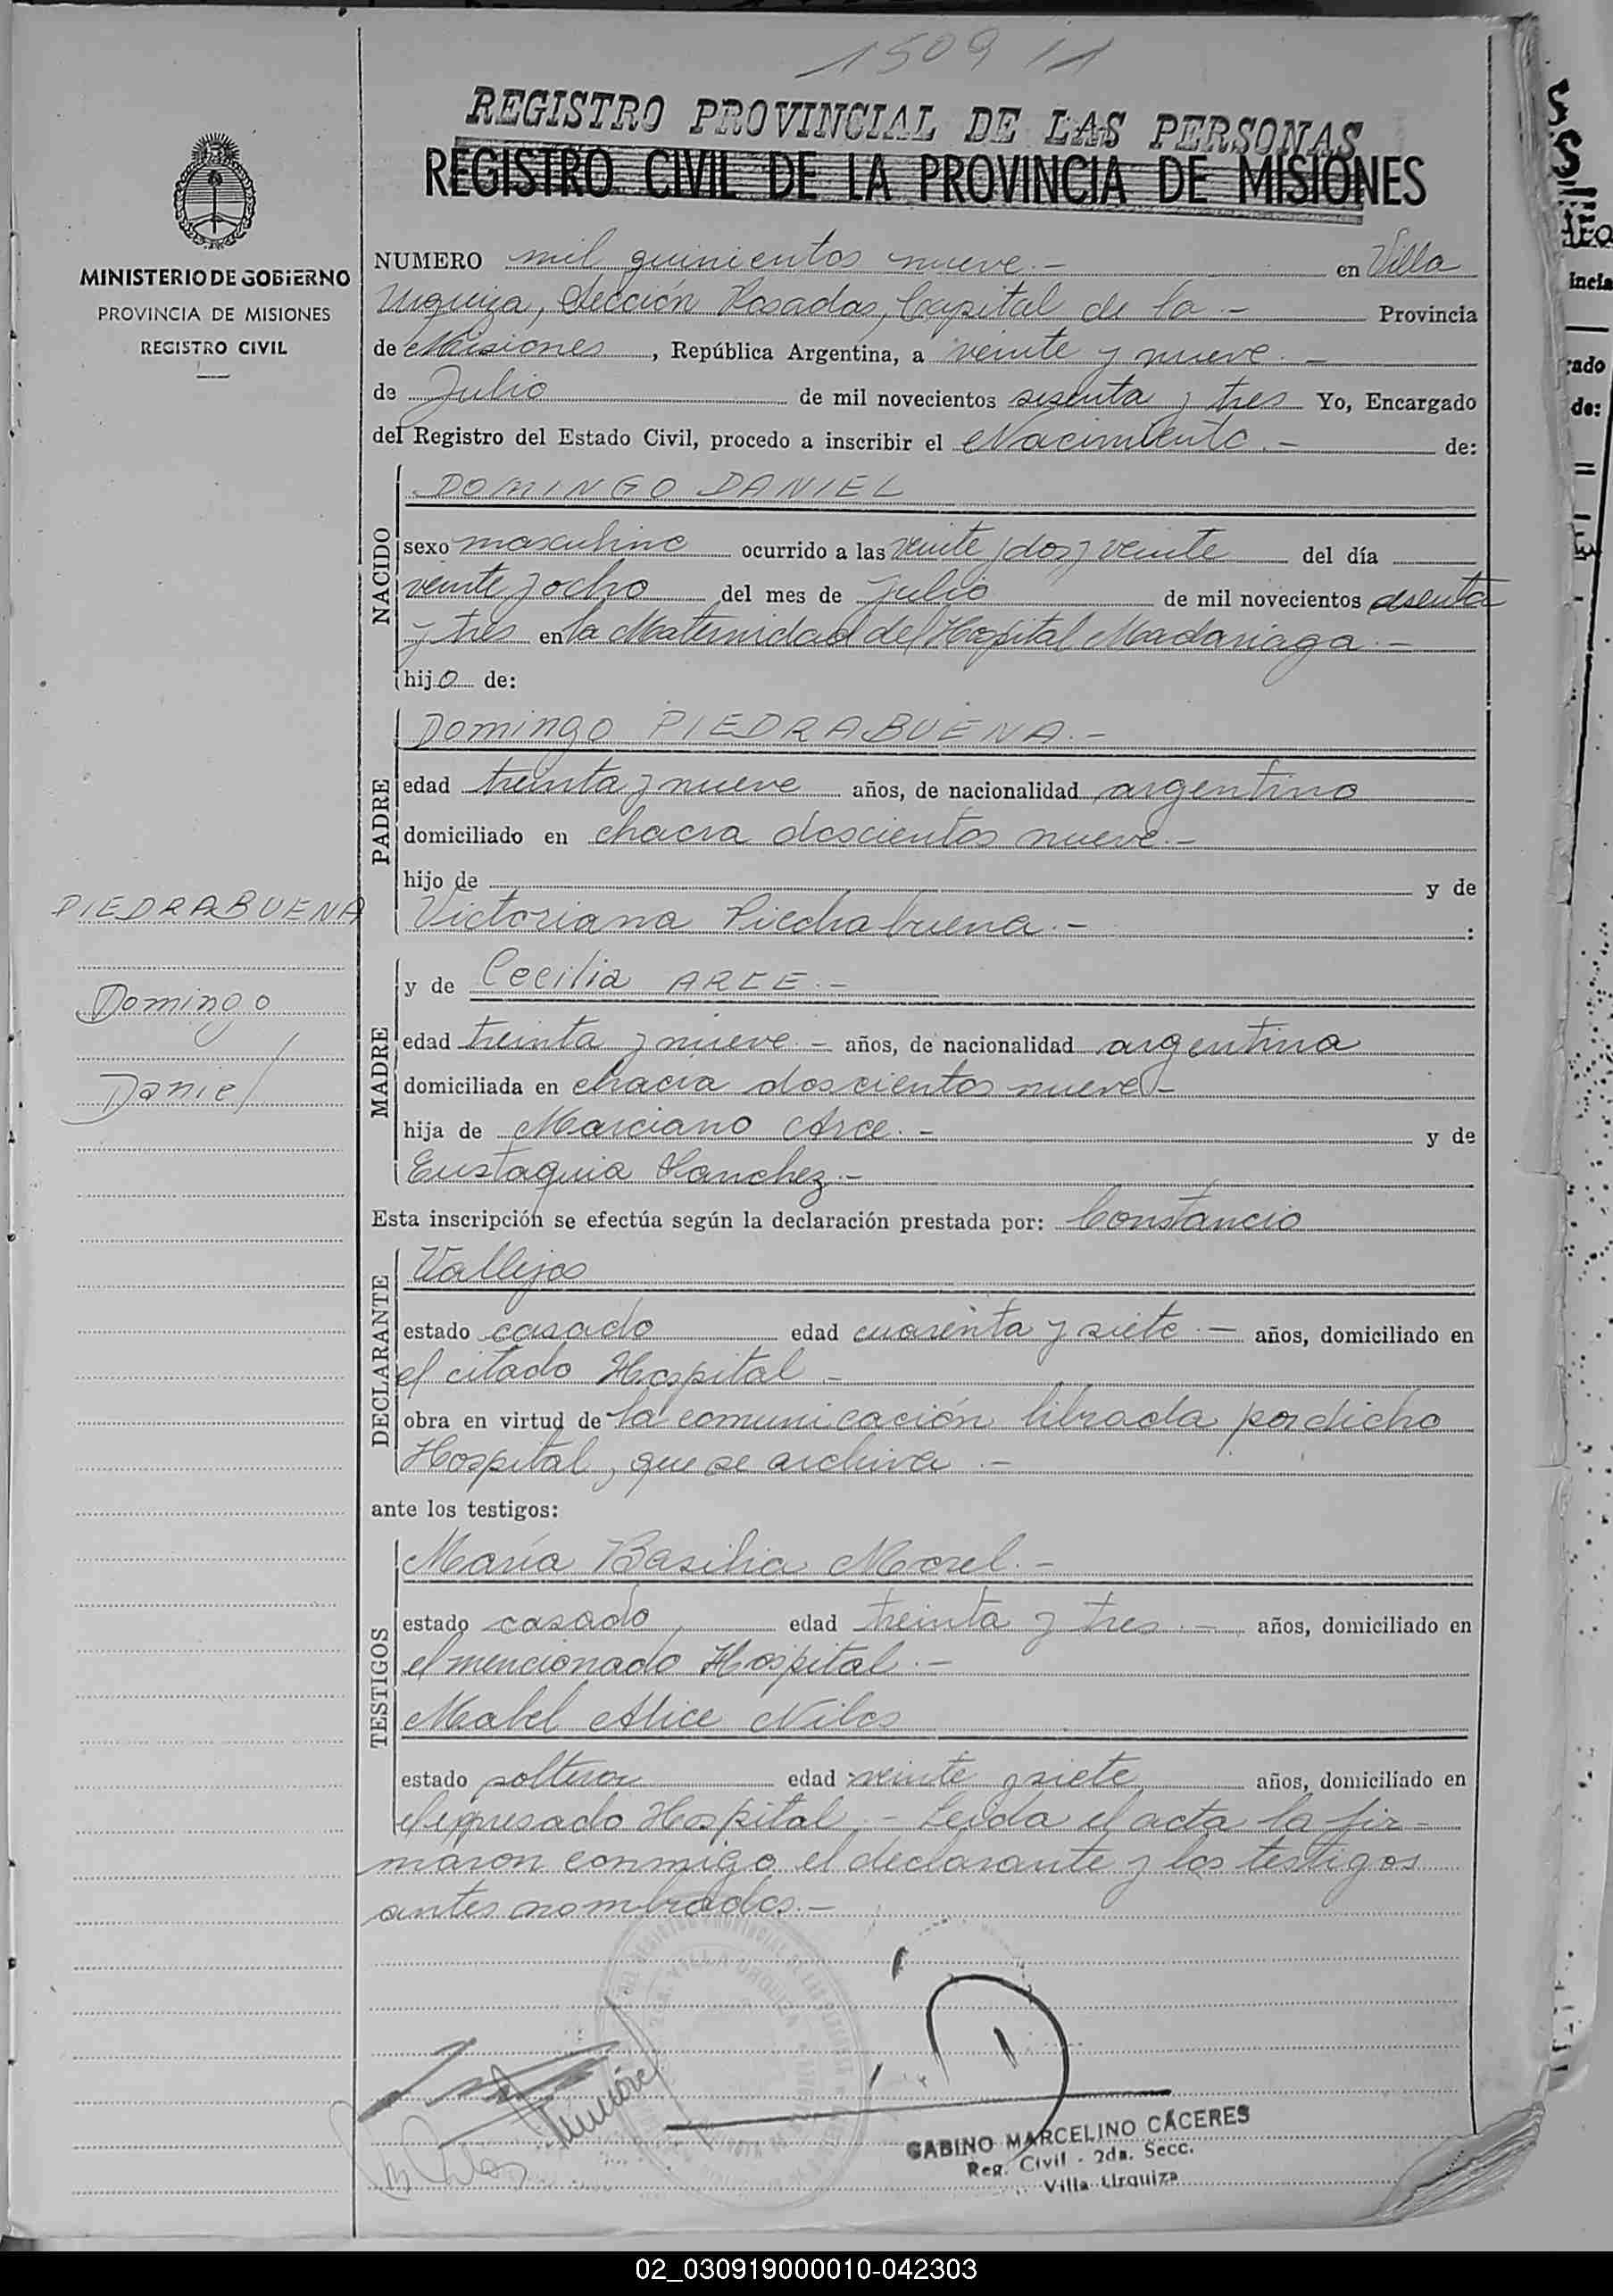 1509 / 1
REGISTRO PROVINCIAL DE LAS PERSONAS
REGISTRO CIVIL DE LA PROVINCIA DE MISIONES
MINISTERIO DE GOBIERNO
PROVINCIA DE MISIONES
REGISTRO CIVIL
NUMERO mil quinientos nueve.- en Villa
Urquiza, Sección Posadas, Capital de la - Provincia
de Misiones, República Argentina, a veinte y nueve -
de Julio de mil novecientos sesenta y tres Yo, Encargado
del Registro del Estado Civil, procedo a inscribir el Nacimiento.- de:
NACIDO
DOMINGO DANIEL
sexo masculino ocurrido a las veinte y dos y veinte del día
veinte y ocho del mes de Julio de mil novecientos sesenta
y tres en la Maternidad del Hospital Madariaga.-
hijo de:
PADRE
Domingo PIEDRABUENA.-
edad treinta y nueve años, de nacionalidad argentino
domiciliado en chacra doscientos nueve.-
hijo de y de
Victoriana Piedrabuena.- :
PIEDRABUENA
Domingo
Daniel
MADRE
y de Cecilia ARCE.-
edad treinta y nueve.- años, de nacionalidad argentina
domiciliada en chacra doscientos nueve-
hija de Marciano Arce.- y de
Eustaquia Sanchez.-
Esta inscripción se efectúa según la declaración prestada por: Constancio
DECLARANTE
Vallejos
estado casado edad cuarenta y siete.- años, domiciliado en
el citado Hospital -
obra en virtud de la comunicación librada por dicho
Hospital, que se archiva.-
ante los testigos:
TESTIGOS
María Basilia Morel.-
estado casado edad treinta y tres.- años, domiciliado en
el mencionado Hospital.-
Mabel Alice
estado soltera edad veinte y siete años, domiciliado en
el expresado Hospital.- Leída el acta la fir-
maron conmigo el declarante y los testigos
antes nombrados.-
GABINO MARCELINO CÁCERES
Reg. Civil - 2da. Secc.
Villa Urquiza
02_030919000010-042303